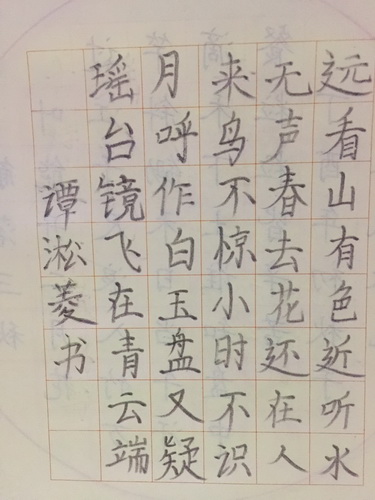 远看山有色近听水
无声春去花还在人
来鸟不惊小时不识
月呼作白玉盘又疑
瑶台镜飞在青云端
谭淞菱书